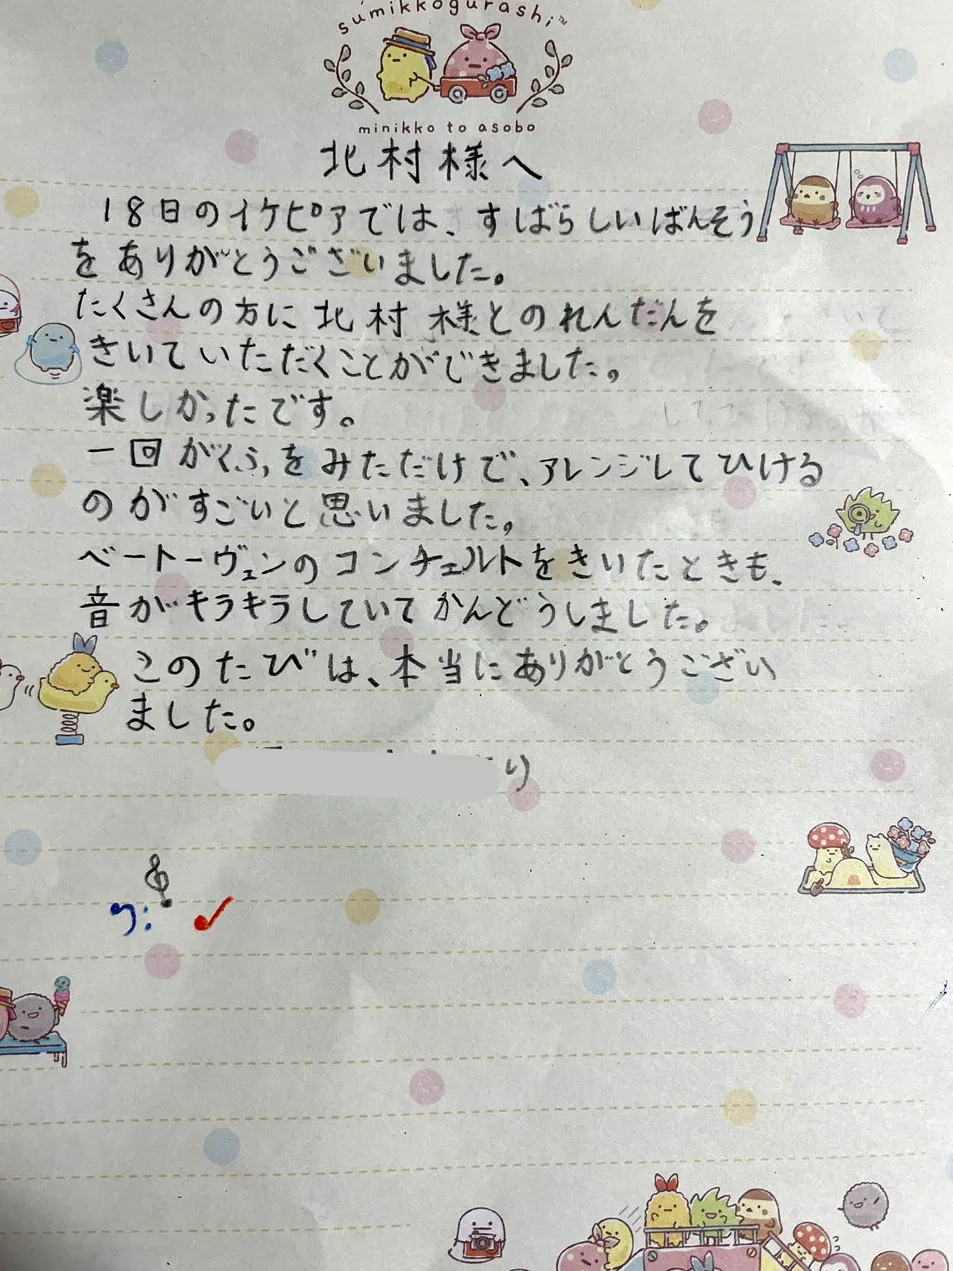 sumikkogurashi™
minikko to asobo
北村様へ
18日のイケピアでは、すばらしいばんそう
をありがとうございました。
たくさんの方に北村様とのれんだんを
きいていただくことができました。
楽しかったです。
一回がくふをみただけで、アレンジしてひける
のがすごいと思いました。
ベートーヴェンのコンチェルトをきいたときも、
音がキラキラしていてかんどうしました。
このたびは、本当にありがとうござい
ました。
り